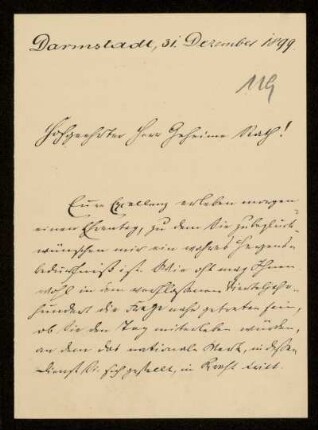 Darmstadt, 31. Dezember 1899.
119
Hochgeehrter Herr Geheime Rath!
Eure Exzellenz erleben morgen
einen Ehrentag, zu dem Sie zu beglück-
wünschen mir ein wahres Herzens-
bedürfniß ist. Wie oft mag Ihnen
wohl in dem verflossenen Vierteljahr-
hundert die Frage nahe getreten sein,
ob Sie den Tag miterleben würden,
an dem das nationale Werk, in dessen
Dienst Sie sich gestellt, in Kraft tritt.